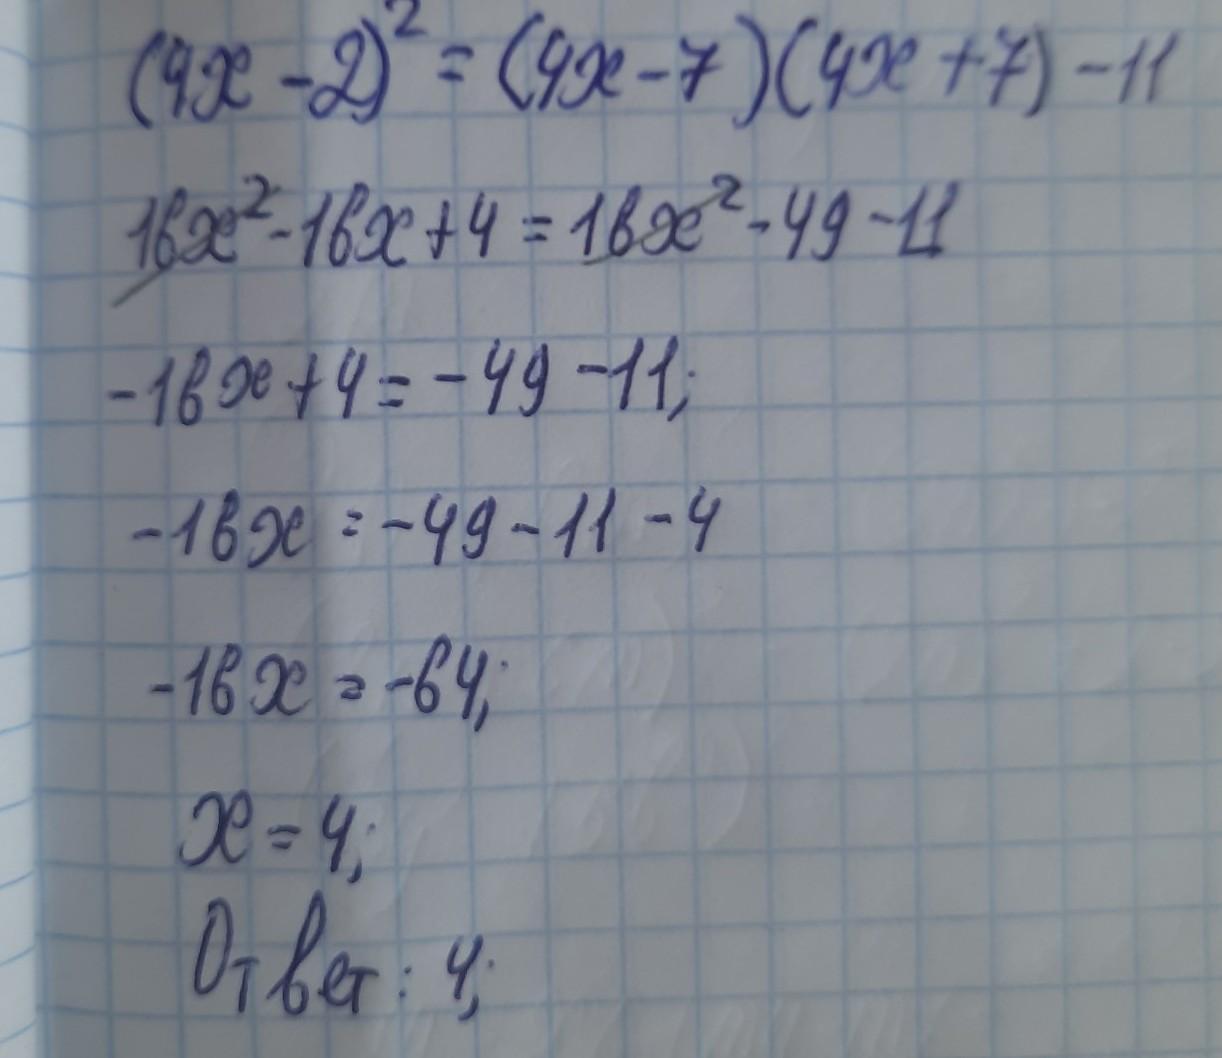 (4x - 2)² = (4x - 7)(4x + 7) - 11
16x² - 16x + 4 = 16x² - 49 - 11
-16x + 4 = -49 - 11;
-16x = -49 - 11 - 4
-16x = -64;
x = 4;
Ответ: 4;